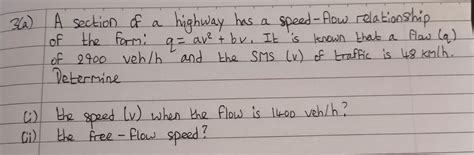 3(a) A section of a highway has a speed-flow relationship
of the form: q = av² + bv. It is known that a flow (q)
of 2900 veh/h and the SMS (v) of traffic is 48 km/h.
Determine
(i) the speed (v) when the flow is 1400 veh/h?
(ii) the free-flow speed?